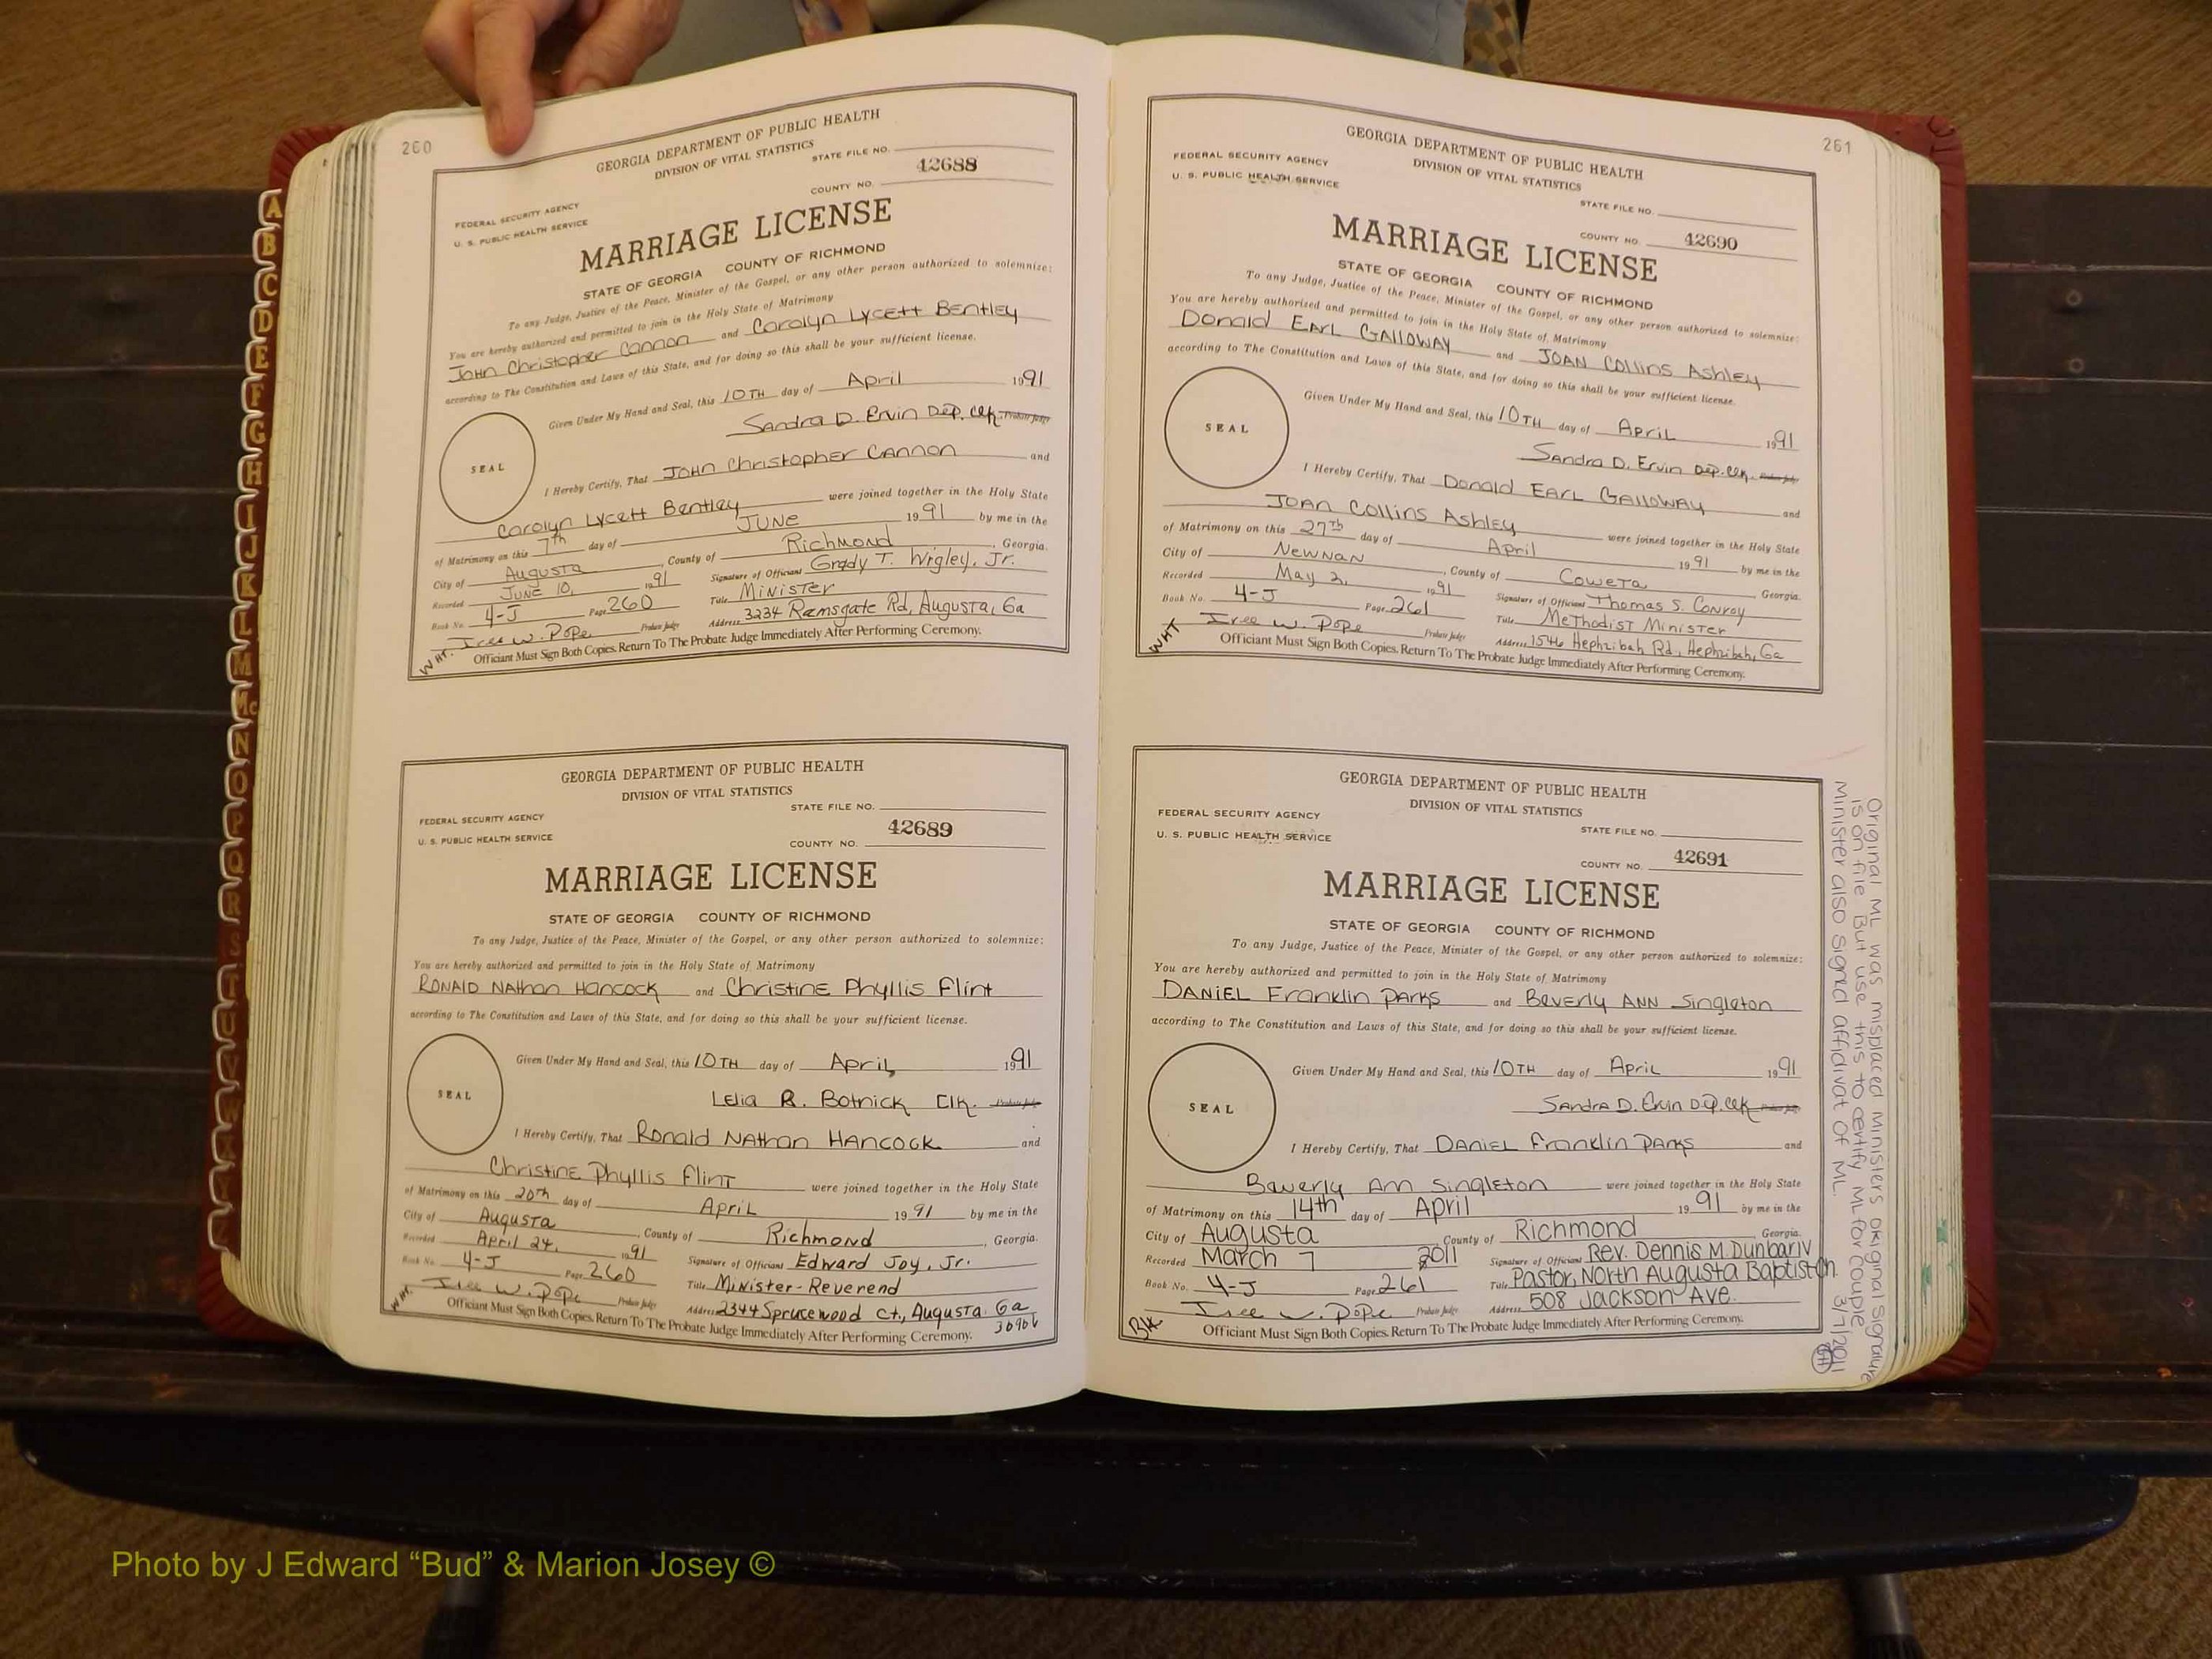 260
GEORGIA DEPARTMENT OF PUBLIC HEALTH
DIVISION OF VITAL STATISTICS
STATE FILE NO.
42688
COUNTY NO.
FEDERAL SECURITY AGENCY
U. S. PUBLIC HEALTH SERVICE
MARRIAGE LICENSE
STATE OF GEORGIA COUNTY OF RICHMOND
To any Judge, Justice of the Peace, Minister of the Gospel, or any other person authorized to solemnize:
You are hereby authorized and permitted to join in the Holy State of Matrimony
John Christopher Cannon and Carolyn Lycett Bentley
according to The Constitution and Laws of this State, and for doing so this shall be your sufficient license.
Given Under My Hand and Seal, this 10TH day of April 1991
Sandra D. Ervin Dep. Clk. Probate Judge
SEAL
I Hereby Certify, That John Christopher Cannon and
Carolyn Lycett Bentley were joined together in the Holy State
of Matrimony on this 7th day of JUNE 1991 by me in the
City of Augusta, County of Richmond, Georgia.
Recorded JUNE 10, 1991 Signature of Officiant Grady T. Wigley, Jr.
Book No. 4-J Page 260 Title Minister
Iree W. Pope Probate Judge Address 3234 Ramsgate Rd, Augusta, Ga
WHT.
Officiant Must Sign Both Copies. Return To The Probate Judge Immediately After Performing Ceremony.
GEORGIA DEPARTMENT OF PUBLIC HEALTH
DIVISION OF VITAL STATISTICS
STATE FILE NO.
FEDERAL SECURITY AGENCY
42689
U. S. PUBLIC HEALTH SERVICE
COUNTY NO.
MARRIAGE LICENSE
STATE OF GEORGIA COUNTY OF RICHMOND
To any Judge, Justice of the Peace, Minister of the Gospel, or any other person authorized to solemnize:
You are hereby authorized and permitted to join in the Holy State of Matrimony
Ronald Nathan Hancock and Christine Phyllis Flint
according to The Constitution and Laws of this State, and for doing so this shall be your sufficient license.
Given Under My Hand and Seal, this 10TH day of April, 1991
Lelia R. Botnick Clk. Probate Judge
SEAL
I Hereby Certify, That Ronald Nathan Hancock and
Christine Phyllis Flint were joined together in the Holy State
of Matrimony on this 20th day of April 1991 by me in the
City of Augusta, County of Richmond, Georgia.
Recorded April 24, 1991 Signature of Officiant Edward Joy, Jr.
Book No. 4-J Page 260 Title Minister-Reverend
Iree W. Pope Probate Judge Address 2344 Sprucewood Ct., Augusta, Ga
30906
WHT.
Officiant Must Sign Both Copies. Return To The Probate Judge Immediately After Performing Ceremony.
261
GEORGIA DEPARTMENT OF PUBLIC HEALTH
DIVISION OF VITAL STATISTICS
FEDERAL SECURITY AGENCY
U. S. PUBLIC HEALTH SERVICE
STATE FILE NO.
COUNTY NO. 42690
MARRIAGE LICENSE
STATE OF GEORGIA COUNTY OF RICHMOND
To any Judge, Justice of the Peace, Minister of the Gospel, or any other person authorized to solemnize:
You are hereby authorized and permitted to join in the Holy State of Matrimony
Donald Earl Galloway and Joan Collins Ashley
according to The Constitution and Laws of this State, and for doing so this shall be your sufficient license.
Given Under My Hand and Seal, this 10TH day of April 1991
Sandra D. Ervin Dep. Clk. Probate Judge
SEAL
I Hereby Certify, That Donald Earl Galloway and
Joan Collins Ashley were joined together in the Holy State
of Matrimony on this 27th day of April 1991 by me in the
City of Newnan, County of Coweta, Georgia.
Recorded May 2, 1991 Signature of Officiant Thomas S. Conroy
Book No. 4-J Page 261 Title Methodist Minister
Iree W. Pope Probate Judge Address 1546 Hephzibah Rd., Hephzibah, Ga
WHT
Officiant Must Sign Both Copies. Return To The Probate Judge Immediately After Performing Ceremony.
GEORGIA DEPARTMENT OF PUBLIC HEALTH
DIVISION OF VITAL STATISTICS
FEDERAL SECURITY AGENCY
STATE FILE NO.
U. S. PUBLIC HEALTH SERVICE
COUNTY NO. 42691
MARRIAGE LICENSE
STATE OF GEORGIA COUNTY OF RICHMOND
To any Judge, Justice of the Peace, Minister of the Gospel, or any other person authorized to solemnize:
You are hereby authorized and permitted to join in the Holy State of Matrimony
Daniel Franklin Parks and Beverly Ann Singleton
according to The Constitution and Laws of this State, and for doing so this shall be your sufficient license.
Given Under My Hand and Seal, this 10TH day of April 1991
Sandra D. Ervin Dep. Clk Probate Judge
SEAL
I Hereby Certify, That Daniel Franklin Parks and
Beverly Ann Singleton were joined together in the Holy State
of Matrimony on this 14th day of April 1991 by me in the
City of Augusta, County of Richmond, Georgia.
Recorded March 7 2011 Signature of Officiant Rev. Dennis M. Dunbar IV
Book No. 4-J Page 261 Title Pastor, North Augusta Baptist Ch.
Iree W. Pope Probate Judge Address 508 Jackson Ave.
BLK
Officiant Must Sign Both Copies. Return To The Probate Judge Immediately After Performing Ceremony.
Original ML was misplaced Ministers original Signature
is on file. But use this to certify ML for couple.
Minister also signed affidivat of ML. 3/7/2011
A
B
C
D
E
F
G
H
I
J
K
L
M
Mc
N
O
P
Q
R
S
T
U
V
W
Photo by J Edward “Bud” & Marion Josey ©